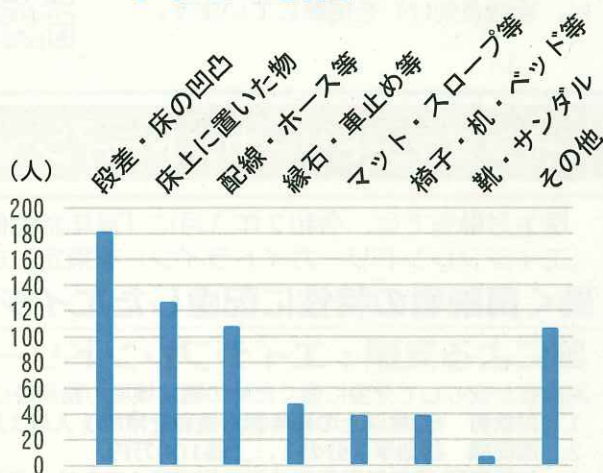 (人)
段差・床の凹凸
床上に置いた物
配線・ホース等
縁石・車止め等
マット・スロープ等
椅子・机・ベッド等
靴・サンダル
その他
200
180
160
140
120
100
80
60
40
20
0